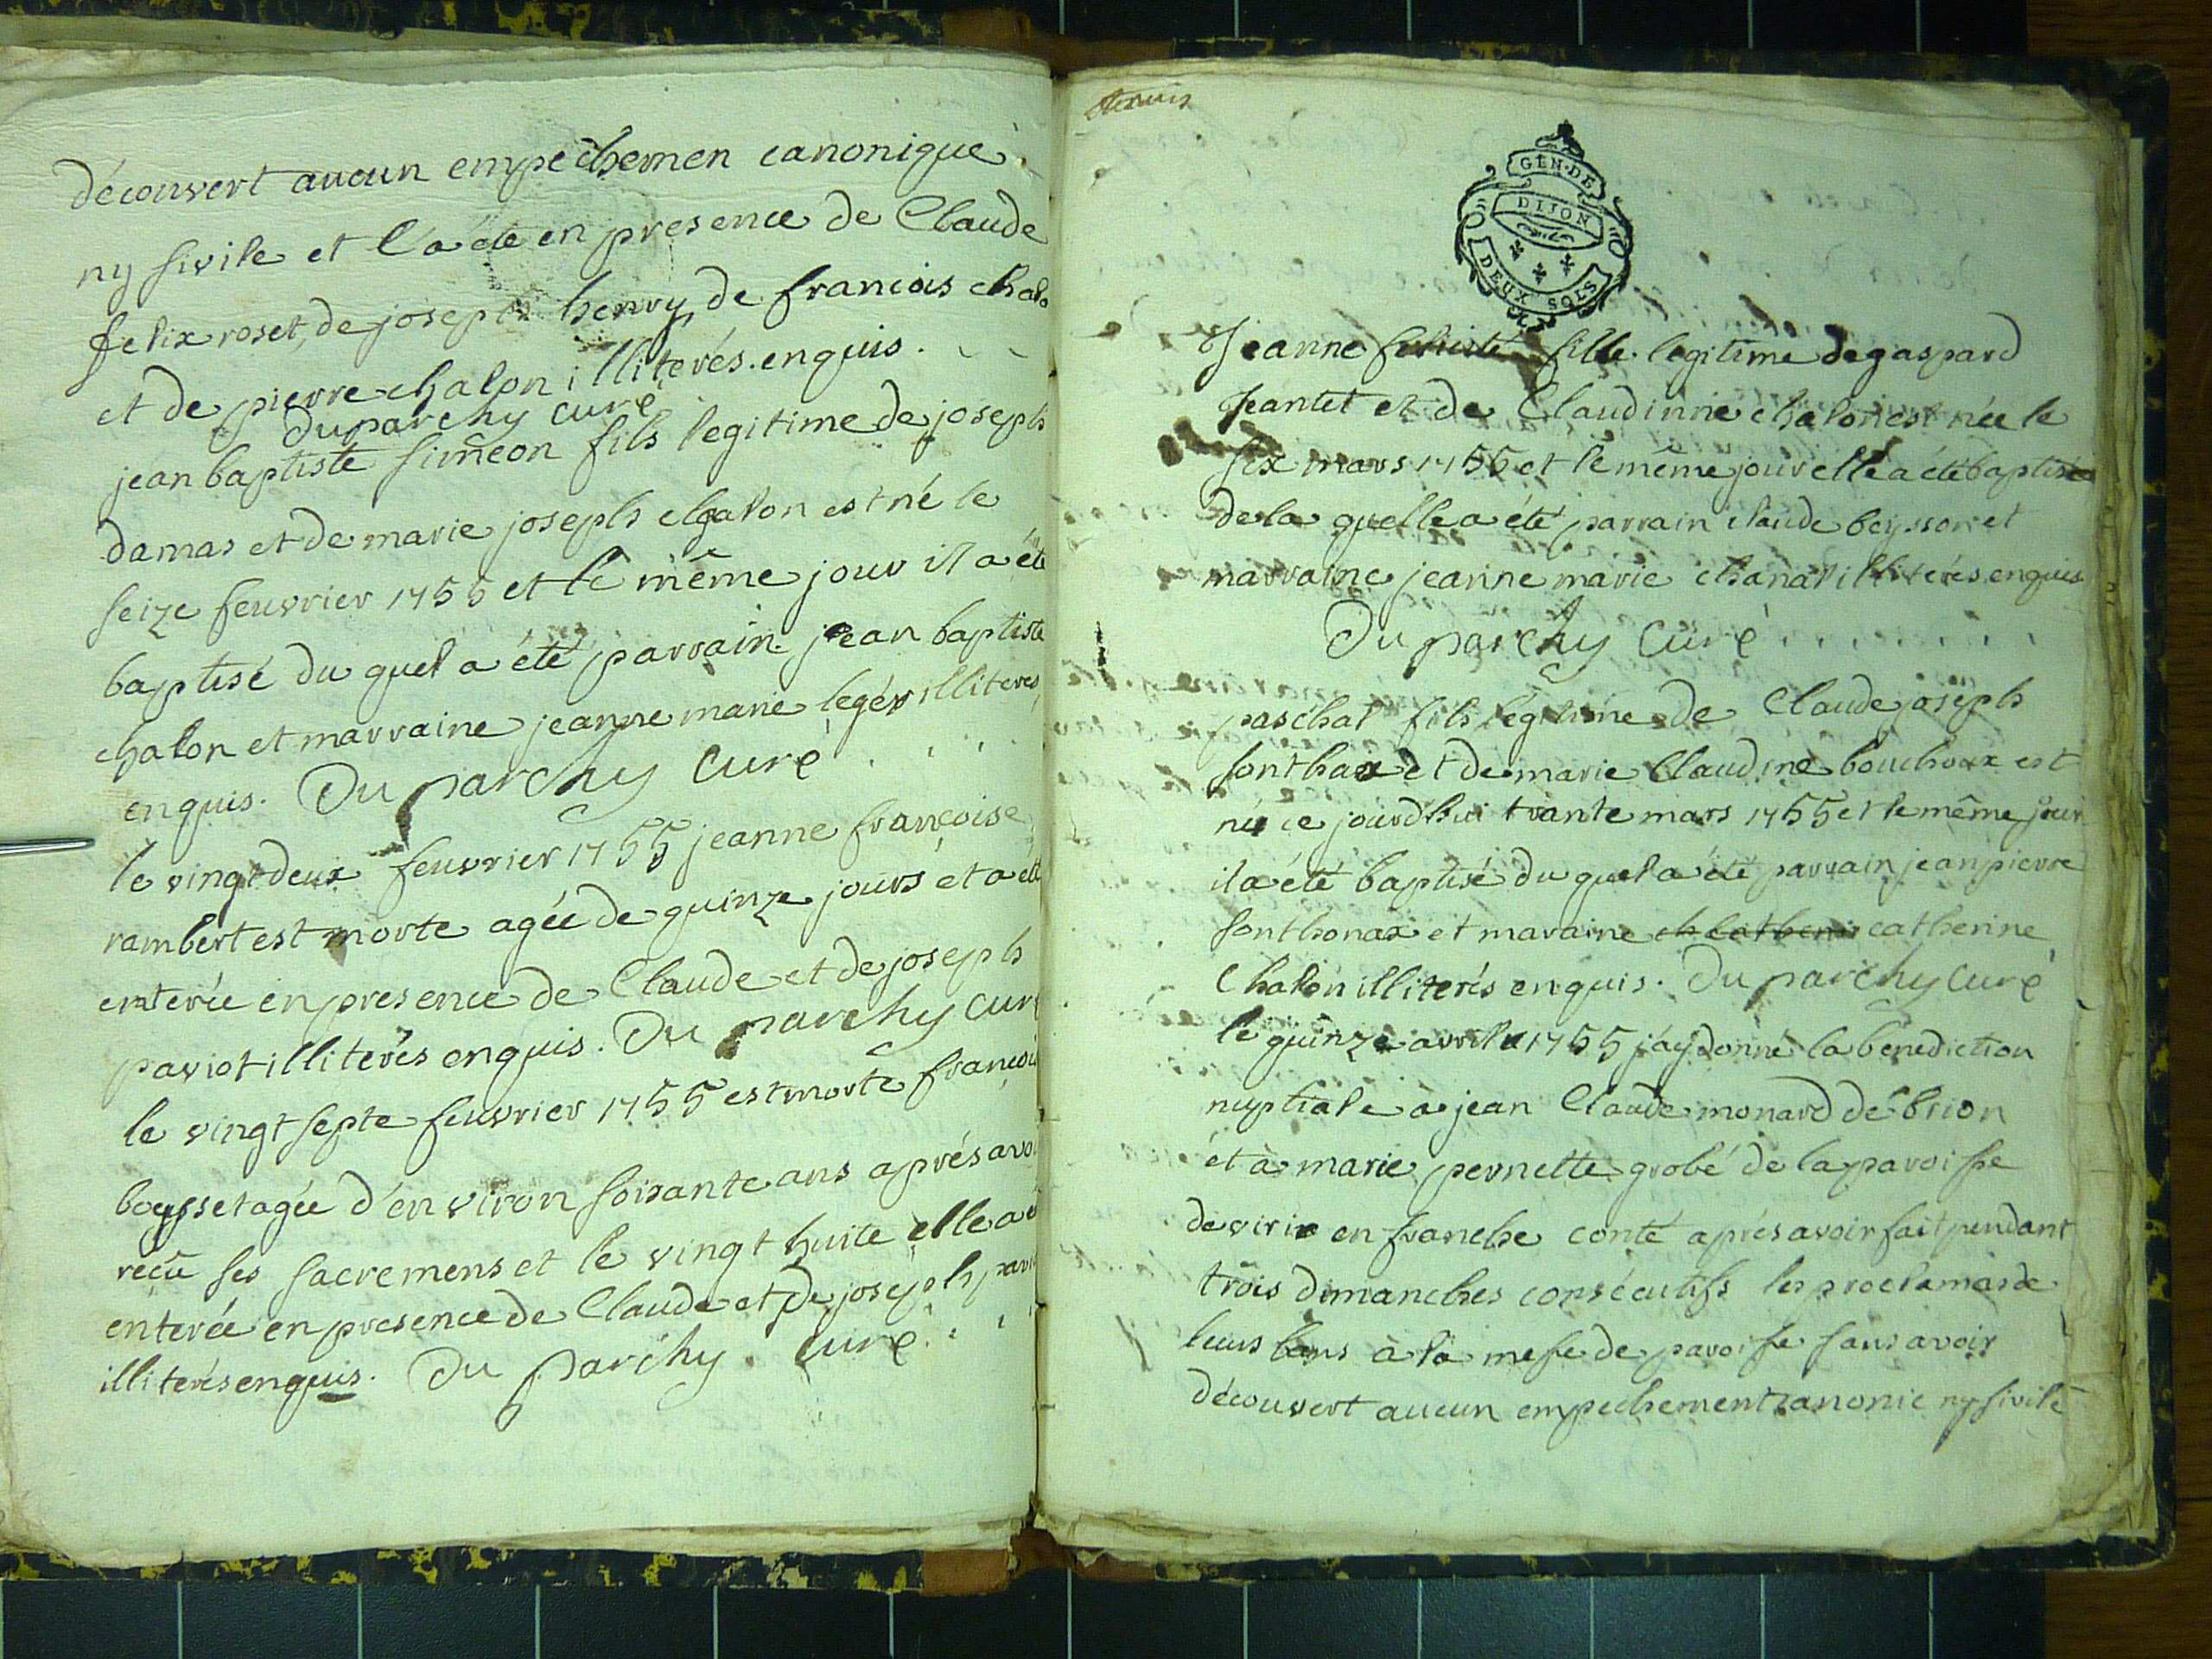 découvert aucun empechemen canonique
ny sivile et l'a été en presence de Claude
felix roset, de joseph henry de francois chalo
et de pierre chalon illiterés enquis.
Duparchy curé
jean baptiste simeon fils legitime de joseph
damas et de marie joseph chalon est né le
seize feuvrier 1755 et le même jour il a été
baptisé du quel a été parrain jean baptiste
chalon et marraine jeanne marie legér illiteres
enquis. Du parchy Curé
le vingt deux feuvrier 1755 jeanne francoise
rambert est morte agée de quinze jours et a été
enterée en presence de Claude et de joseph
paviot illiterés enquis. Du parchy cure
le vingt septe feuvrier 1755 est morte francois
boysset agée d'environ soisante ans aprés avoi
reçu ses sacremens et le vingt huite elle a é
enterée en presence de Claude et de joseph pavi
illiterés enquis. Du parchy. Curé.
GEN. DE
DIJON
DEUX SOLS
Jeanne fille legitime de gaspard
Jeantet et de Claudinne chalon est née le
six mars 1755 et le même jour elle a été baptisée
de la quelle a été parrain claude beysson et
marraine jeanne marie chanal illiterés enquis
Du parchy Curé
paschal fils légitime de Claude joseph
sonthonax et de marie Claudine bouchoux est
né ce jourdhui trante mars 1755 et le même jour
il a été baptisé du quel a été parrain jean pierre
sonthonax et maraine catherine
Chalon illiterés enquis. Du parchy Curé
le quinze avril 1755 j'ay donné la bénédiction
nuptiale à jean Claude monard de brion
et à marie pernette grobé de la paroisse
de virie en franche conté aprés avoir fait pendant
trois dimanches consécutifs les proclamas de
leurs bans à la messe de paroisse sans avoir
découvert aucun empechement canonic ny sivile